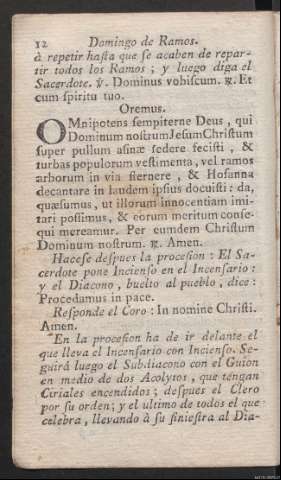 12 Domingo de Ramos.
à repetir hasta que se acaben de repar-
tir todos los Ramos ; y luego diga el
Sacerdote. ℣. Dominus vobiscum. ℟. Et
cum spiritu tuo.
Oremus.
OMnipotens sempiterne Deus , qui
Dominum nostrum Jesum Christum
super pullum asinæ sedere fecisti , &
turbas populorum vestimenta, vel ramos
arborum in via sternere , & Hosanna
decantare in laudem ipsius docuisti : da,
quæsumus, ut illorum innocentiam imi-
tari possimus, & eorum meritum conse-
qui mereamur. Per eumdem Christum
Dominum nostrum. ℟. Amen.
Hacese despues la procesion : El Sa-
cerdote pone Incienso en el Incensario :
y el Diacono , buelto al pueblo , dice :
Procedamus in pace.
Responde el Coro : In nomine Christi.
Amen.
En la procesion ha de ir delante el
que lleva el Incensario con Incienso. Se-
guirá luego el Subdiacono con el Guion
en medio de dos Acolytos , que tengan
Ciriales encendidos ; despues el Clero
por su orden ; y el ultimo de todos el que
celebra , llevando à su siniestra al Dia-